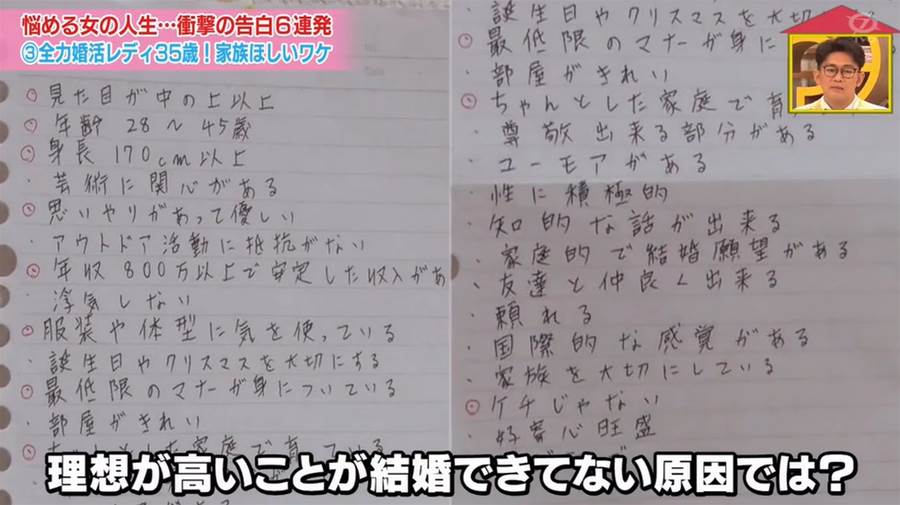 悩める女の人生…衝撃の告白6連発
③全力婚活レディ35歳!家族ほしいワケ
見た目が中の上以上
年齢 28~45歳
身長 170cm以上
芸術に関心がある
思いやりがあって優しい
アウトドア活動に抵抗がない
年収 800万以上で安定した収入があ
浮気しない
服装や体型に気を使っている
誕生日やクリスマスを大切にする
最低限のマナーが身についている
部屋がきれい
ちゃんとした家庭で育っている
誕生日やクリスマスを大切
最低限のマナーが身につ
部屋がきれい
ちゃんとした家庭で育
尊敬出来る部分がある
ユーモアがある
性に積極的
知的な話が出来る
家庭的で結婚願望がある
友達と仲良く出来る
頼れる
国際的な感覚がある
家族を大切にしている
ケチじゃない
好奇心旺盛
理想が高いことが結婚できてない原因では?